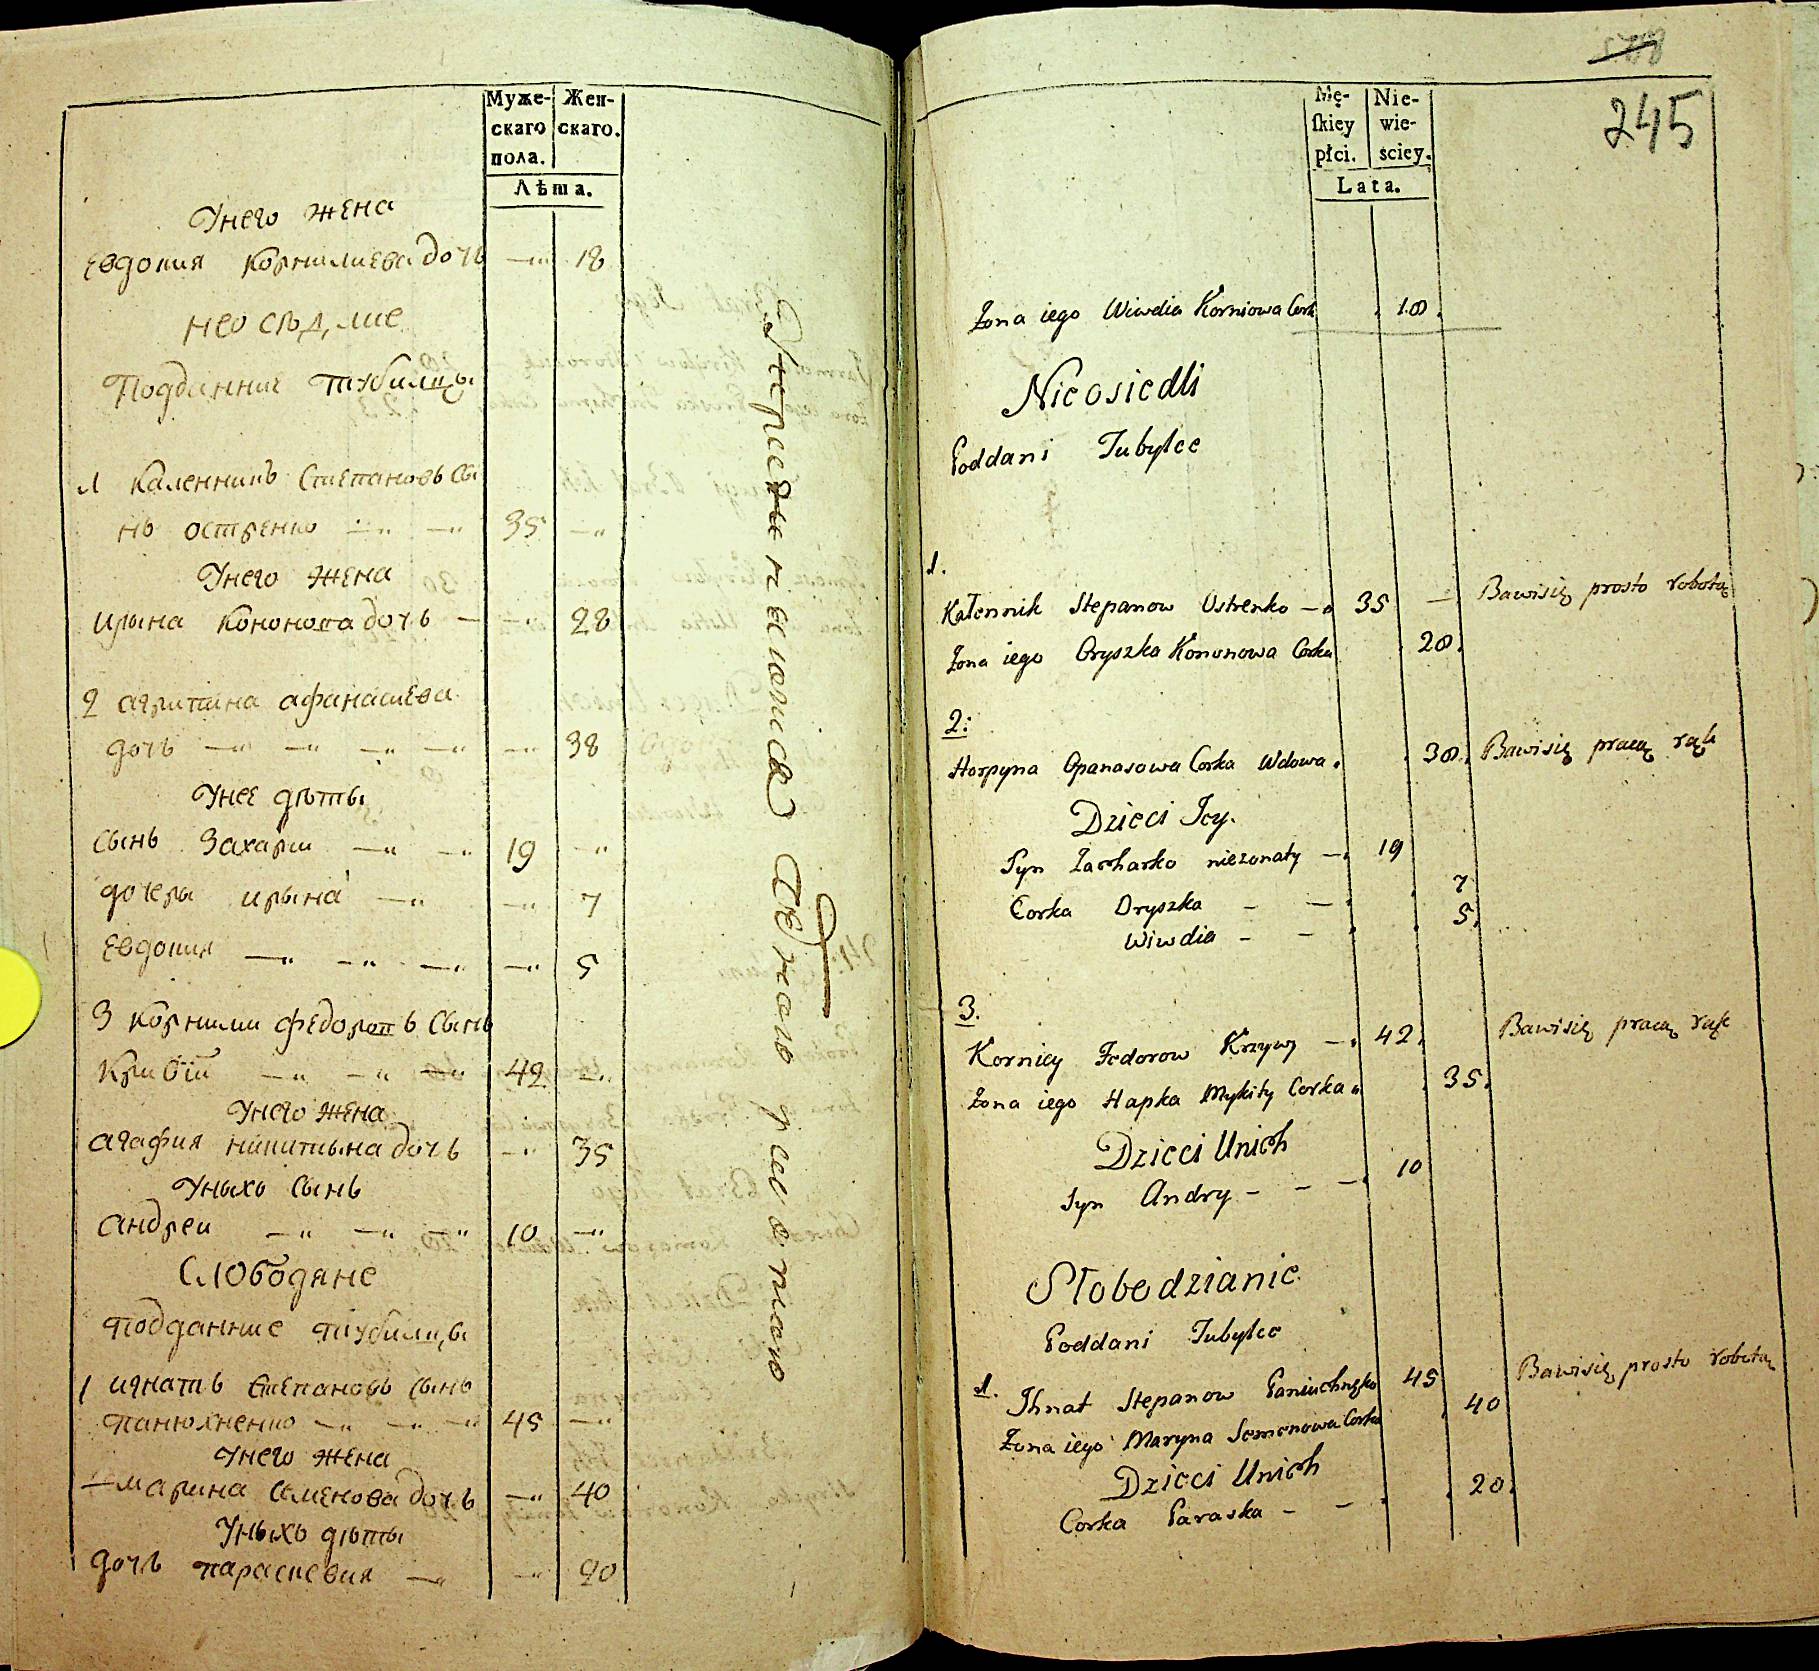 Муже-
скаго
пола.
Жен-
скаго.
Лѣта.
Унего жена
Евдокия Корнилиева дочь —„ 18
неосѣдлие
Подданние тубилцы
1 Каленникъ Степановъ сы
нъ остренко —„ —„ 35 —„
Унего жена
Ирына Кононова дочь — —„ 28
2 агрипина афанасиева
дочь —„ —„ —„ —„ —„ 38
Унее дѣты
сынъ Захарии —„ —„ 19 —„
дочеры ирына —„ —„ 7
Евдокия —„ —„ —„ —„ 5
3 Корнилии федоровъ сынъ
Кривїи —„ —„ —„ 42 —„
Унего жена
агафия никитына дочь —„ 35
Уныхъ сынъ
андреи —„ —„ —„ 10 —„
Слободяне
Подданние тубилцы
1 игнатъ Степановъ сынъ
панюхненко —„ —„ —„ 45 —„
Унего жена
марина семенова дочь —„ 40
Уныхъ дѣты
дочь параскевия —„ —„ 20
578
245
Mę-
ſkiey
płci.
Nie-
wie-
sciey.
Lata.
Żona iego Wiwdia Korniowa Cork . 18.
Nieosiedli
Poddani Tubylce
1.
Kałennik Stepanow Ostrenko — 35 — Bawisię prosto robotą
Żona iego Oryszka Kononowa Corka . 28.
2:
Horpyna Opanasowa Corka Wdowa . . 38. Bawisię pracą rąk
Dzieci Jey.
Syn Zacharko nieżonaty —. 19
Corka Oryszka — — . 7
Wiwdia — — . 5.
3.
Korniey Fedorow Krzywy —. 42. Bawisię pracą rąk
Żona iego Hapka Mykity Corka . 35.
Dzieci Unich
Syn Andry — — — 10
Słobodzianie
Poddani Tubylce
1. Ihnat Stepanow Paniuchnęko 45 Bawisię prosto robotą
Żona iego Maryna Semenowa Corka . 40
Dzieci Unich
Corka Paraska — — . . 20.